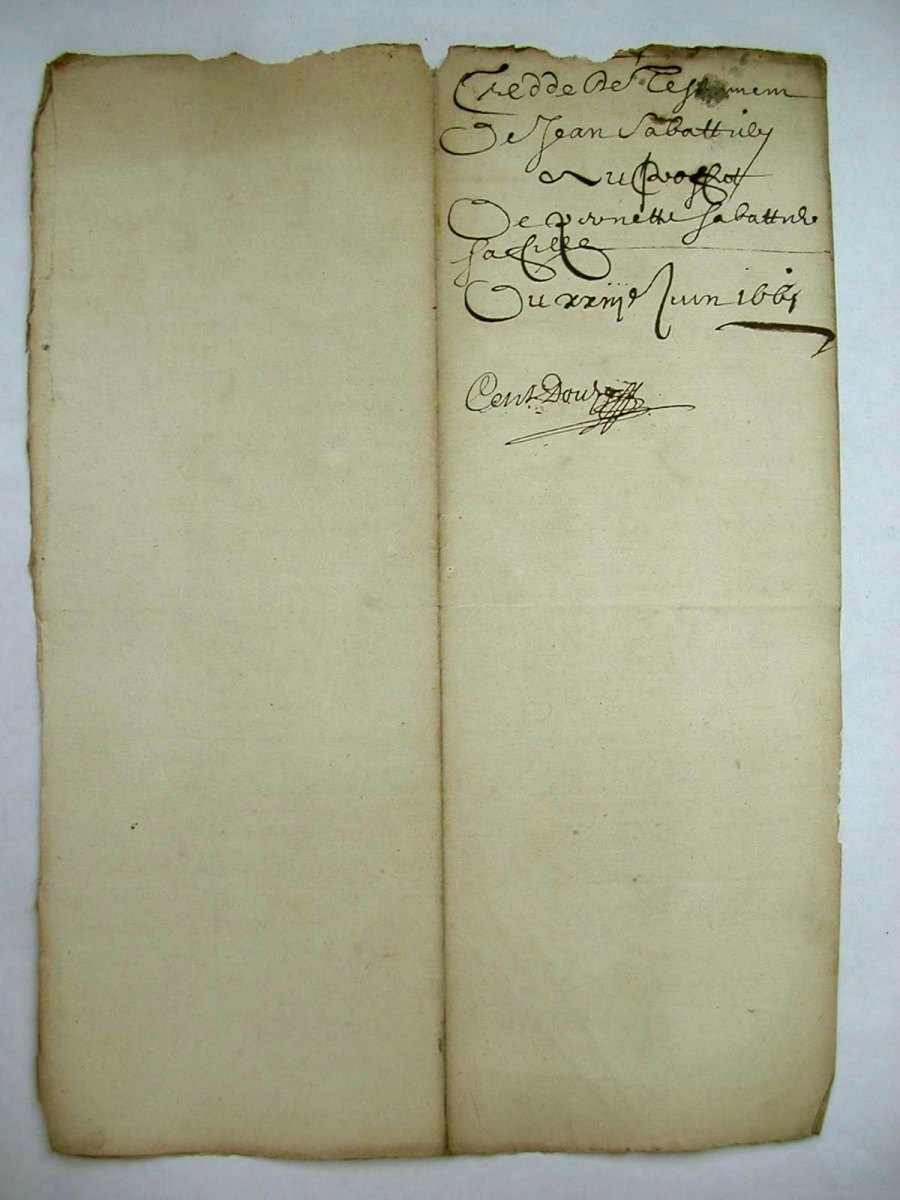 Cedde de Testamem
De Jean Sabattier
Au proffict
De pironette Sabattier
sa fille
Du xxiiij e Juin 1661
Cent Douze